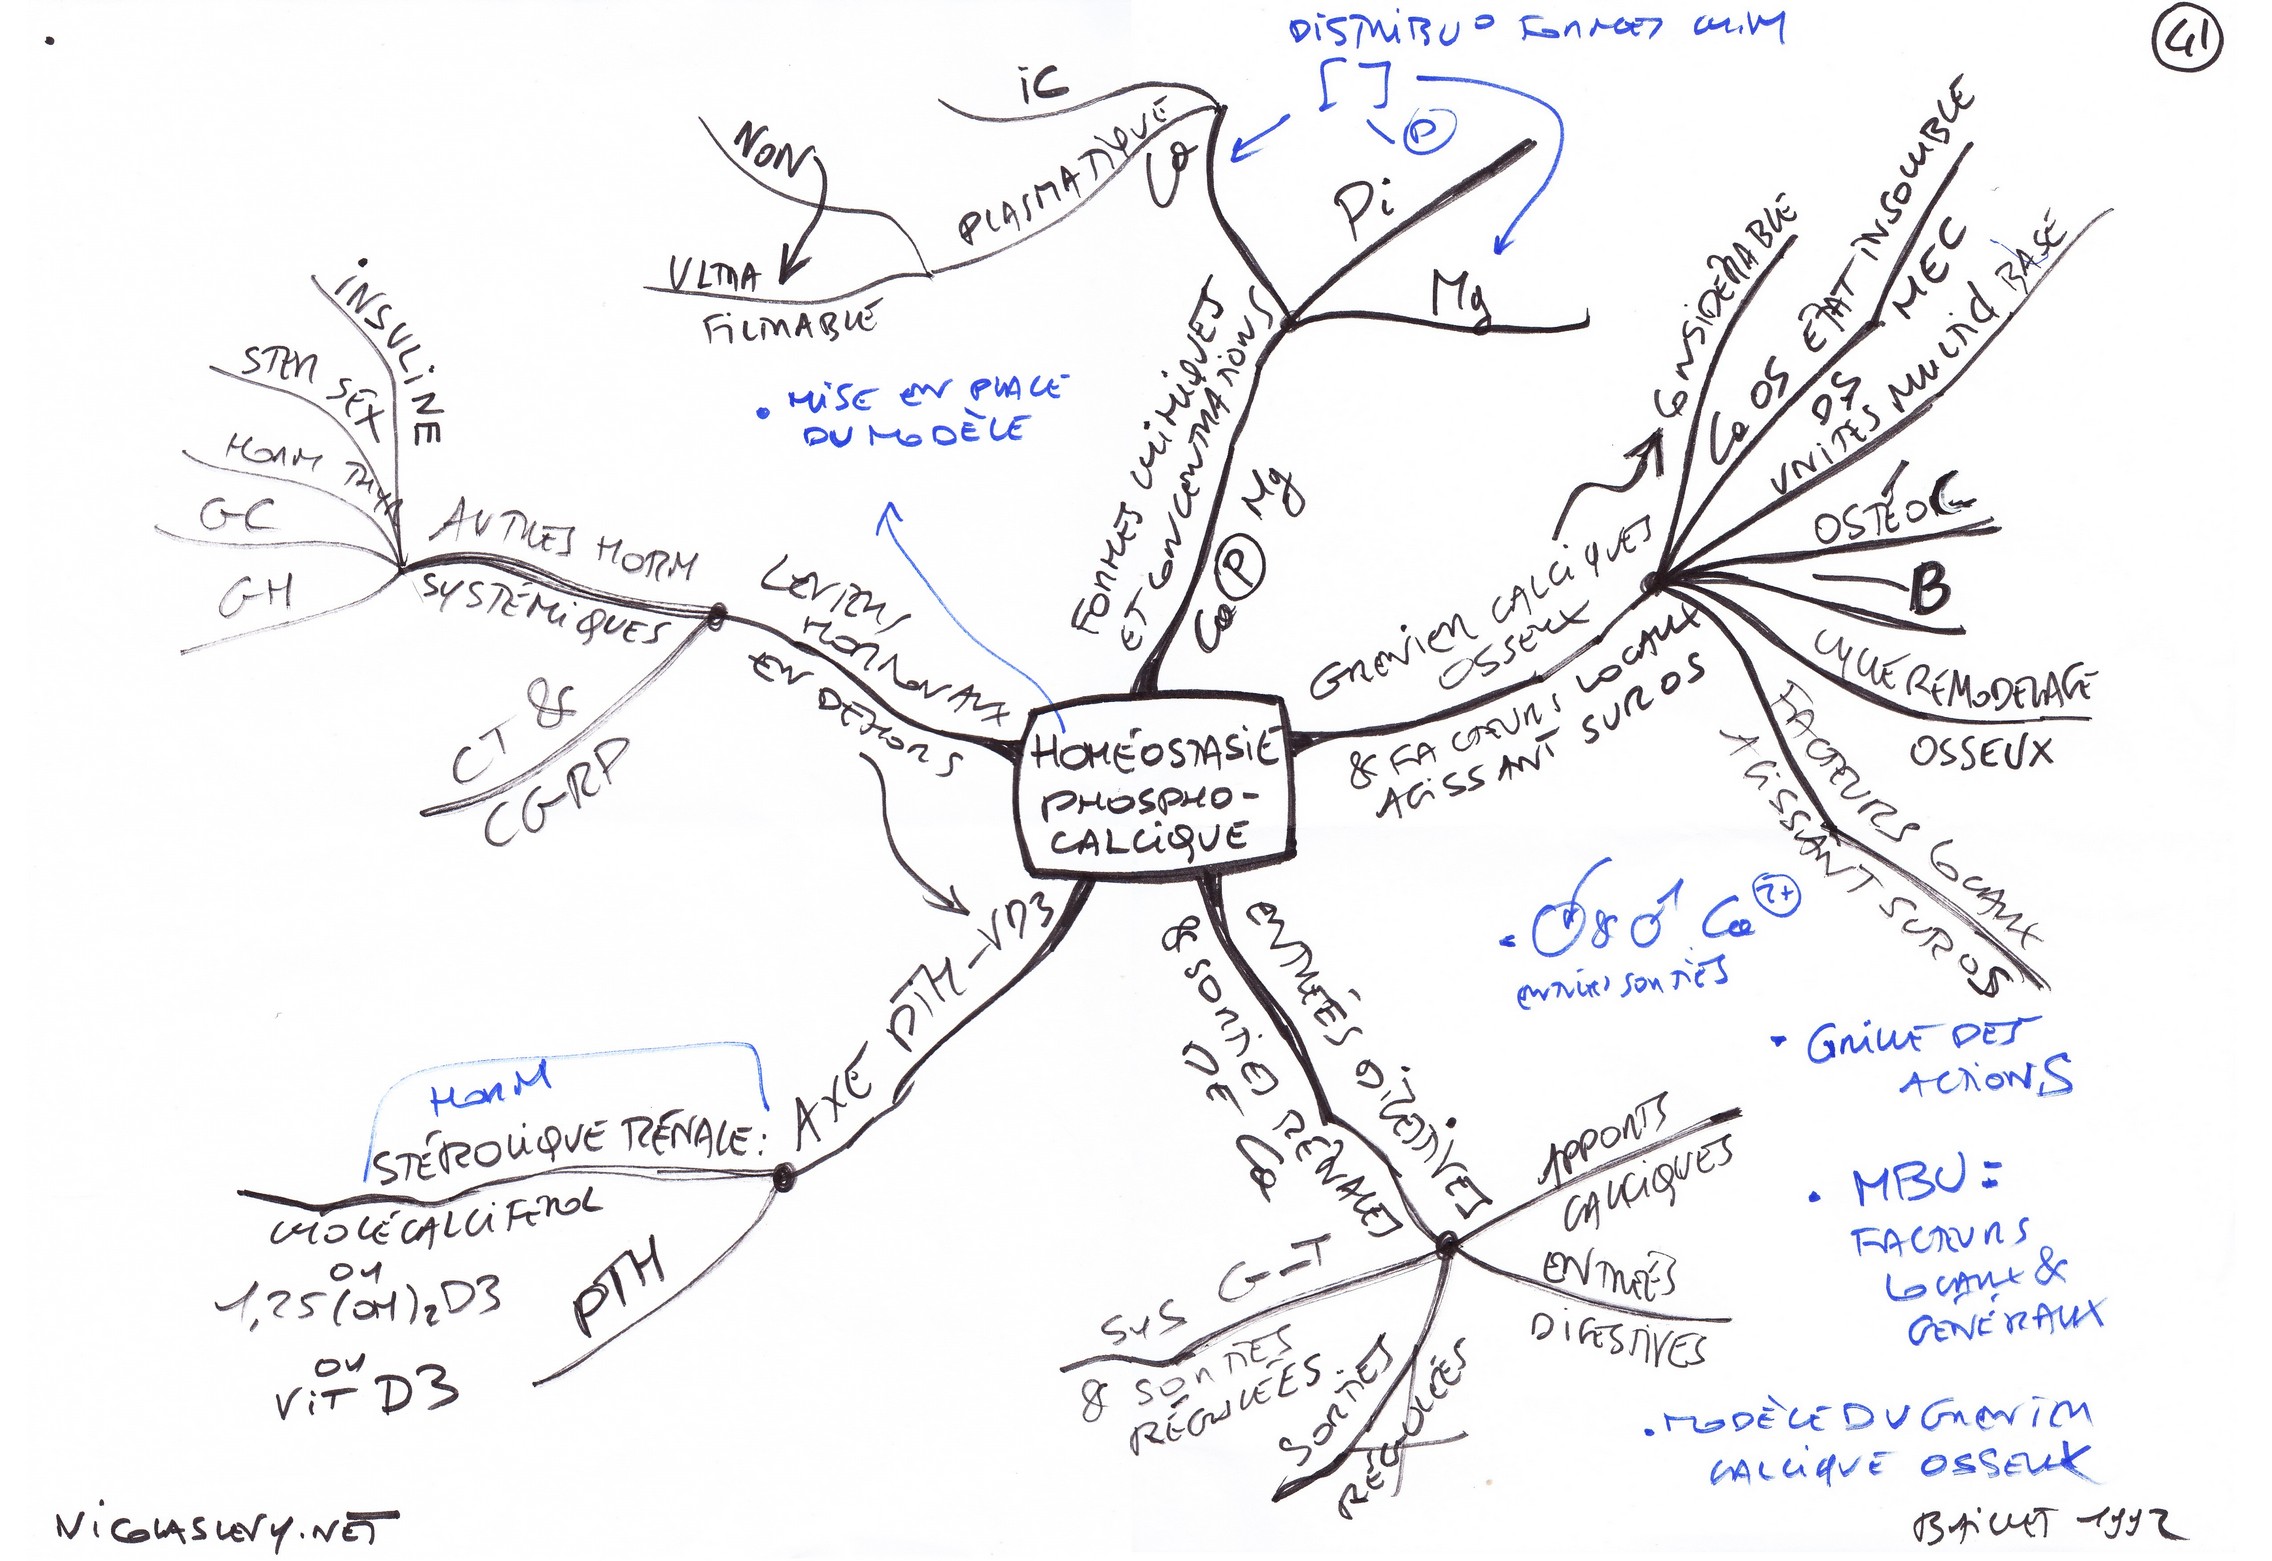 41
DISTRIBU° FORMES CHIM
[ ]
P
iC
PLASMATIQUE
Ca
NON
ULTRA
FILTRABLE
Pi
Mg
FORMES CHIMIQUES
ET CONCENTRATIONS
Ca P Mg
• MISE EN PLACE
DU MODÈLE
INSULINE
STER SEX
HORM THYR
GC
GH
AUTRES HORM
SYSTÉMIQUES
CT &
CGRP
LEVIERS
HORMONAUX
EN DEHORS
HOMÉOSTASIE
PHOSPHO-
CALCIQUE
GRENIER CALCIQUES
OSSEUX
& FACTEURS LOCAUX
AGISSANT SUR OS
CONSIDÉRABLE
Ca OS ÉTAT INSOLUBLE
DS MEC
UNITÉS MULTICL BASE
OSTÉO C
B
CYCLE REMODELAGE
OSSEUX
FACTEURS LOCAUX
AGISSANT SUR OS
AXE PTH-VD3
HORM
STÉROLIQUE RÉNALE:
CHOLÉCALCIFEROL
OU
1,25(OH)2D3
OU
ViT D3
PTH
ENTRÉES DIGESTIVES
& SORTIES RÉNALES
DE Ca
APPORTS
CALCIQUES
ENTRÉES
DIGESTIVES
SYS G-T
& SORTIES
RÉGULÉES
SORTIES
RÉGULÉES
• & Ca 2+
ENTRÉES SORTIES
• GRILLE DES
ACTIONS
• MBU:
FACTEURS
LOCAUX &
GÉNÉRAUX
• MODÈLE DU GRENIER
CALCIQUE OSSEUX
NICOLASLEVY.NET
BAILLET 1992